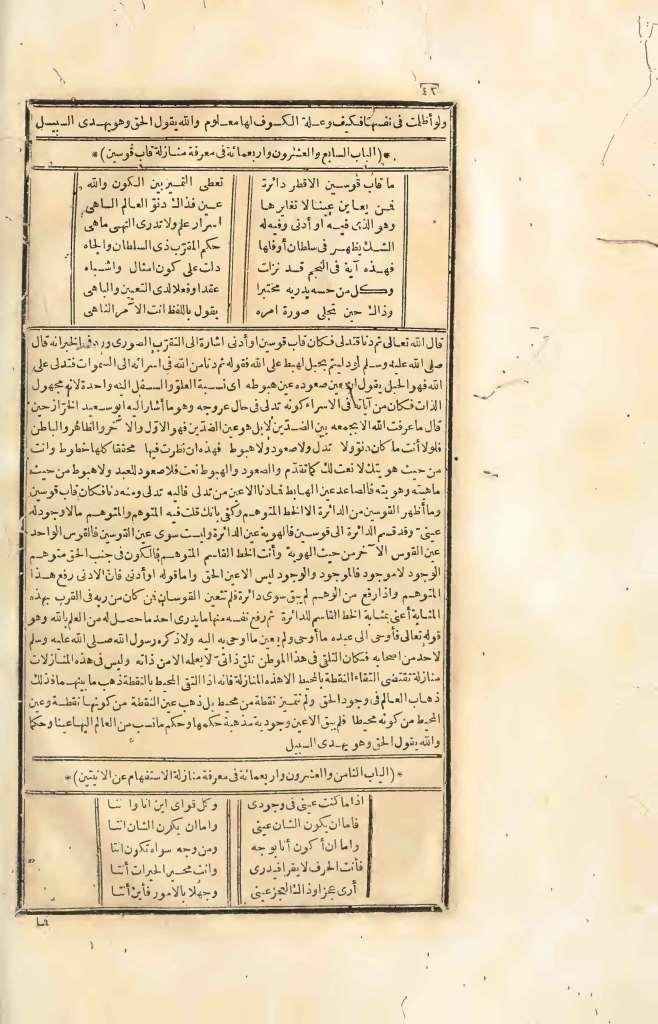 ٤٢
ولو أظلمت في نفسها فكيف وعلة الكسوف لها معلوم والله يقول الحق وهو يهدي السبيل
*(الباب السابع والعشرون واربعمائة في معرفة منازلة قاب قوسين)*
ما قاب قوسين الا قطر دائرة تعطى التميز بين الكون والله
فمن يعاين عينا لا تغايرها عين فذاك دنو العالم الساهى
وهو الذى فيه أو أدنى وفيه له اسرار علم ولا تدرى النهى ماهى
الشك يظهر في سلطان أو فلها حكم المقرب ذى السلطان والجاه
فهذه آية في النجم قد نزلت دلت على كون امثال واشباه
وكل من حسه يدريه مختبرا عقدا وفعلا لدى التعيين والباهى
وذاك حين تجلى صورة امره يقول باللفظ انت الآمر الناهى
قال الله تعالى ثم دنا فتدلى فكان قاب قوسين أو أدنى اشارة الى التقرب الصورى وورد في الخبر انه قال
صلى الله عليه وسلم لو دليتم بحبل لهبط على الله فقوله ثم دنا من الله في اسرائه الى السموات فتدلى على
الله فهو الحبل يقول ان عين صعوده عين هبوطه اى نسبة العلو والسفل اليه واحدة لانه مجهول
الذات فكان من آياته في الاسراء كونه تدلى في حال عروجه وهو ما أشار اليه ابو سعيد الخراز حين
قال ما عرفت الله الا بجمعه بين الضدين لا بل هو عين الضدين فهو الاول والآخر والظاهر والباطن
فلولا أنت ما كان دنو ولا تدل ولا صعود ولا هبوط فهذه ان نظرت فيها محققا كلها خطوط وانت
من حيث هويتك لا نعت لك كما تقدم والصعود والهبوط نعت فلا صعود للعبد ولا هبوط من حيث
ماهيته وهويته فالصاعد عين الهابط فما دنا الا عين من تدلى فاليه تدلى ومنه دنا فكان قاب قوسين
وما أظهر القوسين من الدائرة الا الخط المتوهم وكفى بانك قلت فيه المتوهم والمتوهم ما لا وجود له
عينى وقد قسم الدائرة الى قوسين فالهوية عين الدائرة وليست سوى عين القوسين فالقوس الواحد
عين القوس الآخر من حيث الهوية وأنت الخط القاسم المتوهم فالكون في جنب الحق متوهم
الوجود لا موجود فالموجود والوجود ليس الا عين الحق وما قوله أو أدنى فان الادنى رفع هذا
المتوهم واذا رفع من الوهم لم يبق سوى دائرة فلم تتعين القوسان فمن كان من ربه في القرب بهذه
المثابة أعنى بمثابة الخط القاسم للدائرة ثم رفع نفسه منها ما يدرى احد ما حصل له من العلم بالله وهو
قوله تعالى فأوحى الى عبده ما أوحى ولم يعين ما اوحى به اليه ولا ذكره رسول الله صلى الله عليه وسلم
لاحد من اصحابه فكان التلقى في هذا الموطن تلق ذاتى لا يعلمه الا من ذاقه وليس في هذه المنازلات
منازلة تقتضى التقاء النقطة بالمحيط الا هذه المنازلة فانه اذا التقى المحيط بالنقطة ذهب ما بينهما فذلك
ذهاب العالم في وجود الحق ولم تتميز نقطة من محيط بل ذهب عين النقطة من كونها نقطة وعين
المحيط من كونه محيطا فلم يبق الا عين وجودية مذهبة حكمها وحكم ما نسب من العالم اليها عينا وحكما
والله يقول الحق وهو يهدى السبيل
*(الباب الثامن والعشرون واربعمائة في معرفة منازلة الاستفهام عن الانيتين)*
اذا ما كنت عينى في وجودى وكل قواى اين انا وانتا
فاما ان يكون الشان عينى واما ان يكون الشان انتا
واما ان أكون أنا بوجه ومن وجه سواه تكون انتا
فأنت الحرف لا يقرا فيدرى وانت محير الحيرات أنتا
أرى عجزا وذاك العجز عينى وجهلا بالامور فأين أنتا